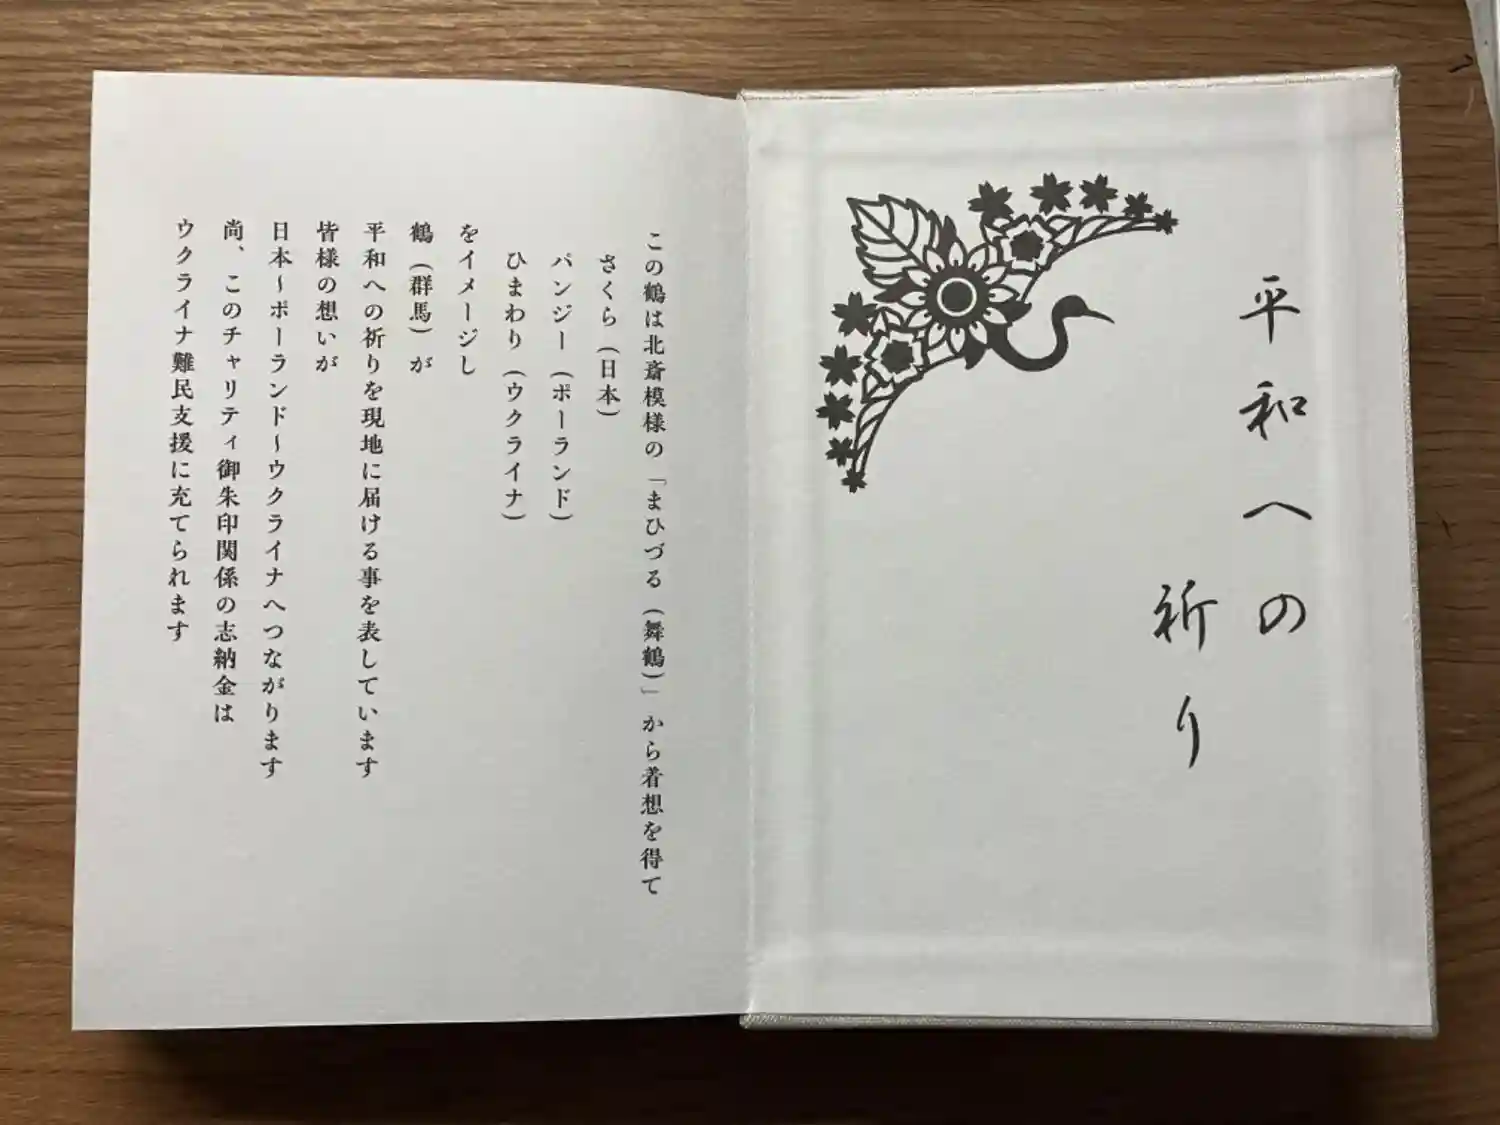 平和への
祈り
この鶴は北斎模様の「まひづる(舞鶴)」から着想を得て
さくら(日本)
パンジー(ポーランド)
ひまわり(ウクライナ)
をイメージし
鶴(群馬)が
平和への祈りを現地に届ける事を表しています
皆様の想いが
日本〜ポーランド〜ウクライナへつながります
尚、このチャリティ御朱印関係の志納金は
ウクライナ難民支援に充てられます